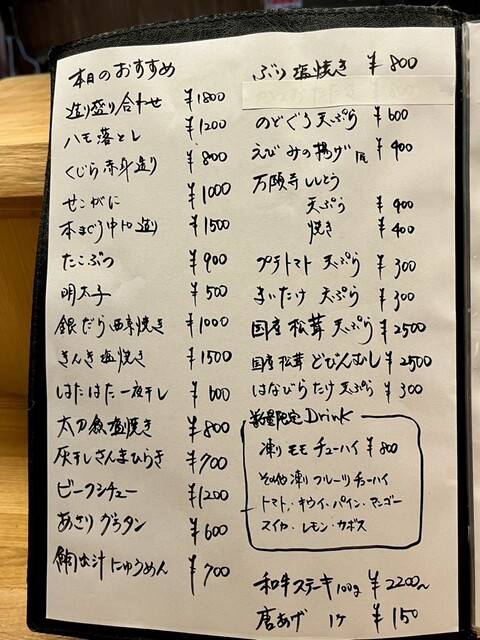 本日のおすすめ
造り盛り合わせ ¥1800
ハモ落とし ¥1200
くじら赤身造り ¥800
せこがに ¥1000
本まぐり中トロ造り ¥1500
たこぶつ ¥900
明太子 ¥500
銀だら西京焼き ¥1000
きんき塩焼き ¥1500
はたはた一夜干し ¥600
太刀魚塩焼き ¥800
灰干しさんまひらき ¥700
ビーフシチュー ¥1200
あさりグラタン ¥600
鯛出汁にゅうめん ¥700
ぶり塩焼き ¥800
のどぐろ天ぷら ¥600
えびみの揚げ ¥400
万願寺ししとう
天ぷら ¥400
焼き ¥400
プチトマト天ぷら ¥300
まいたけ天ぷら ¥300
国産松茸天ぷら ¥2500
国産松茸どびんむし ¥2500
はなびらたけ天ぷら ¥300
数量限定Drink
凍りモモチューハイ ¥800
その他凍りフルーツチューハイ
トマト・キウイ・パイン・マンゴー
スイカ・レモン・カボス
和牛ステーキ100g ¥2200～
唐あげ 1ケ ¥150